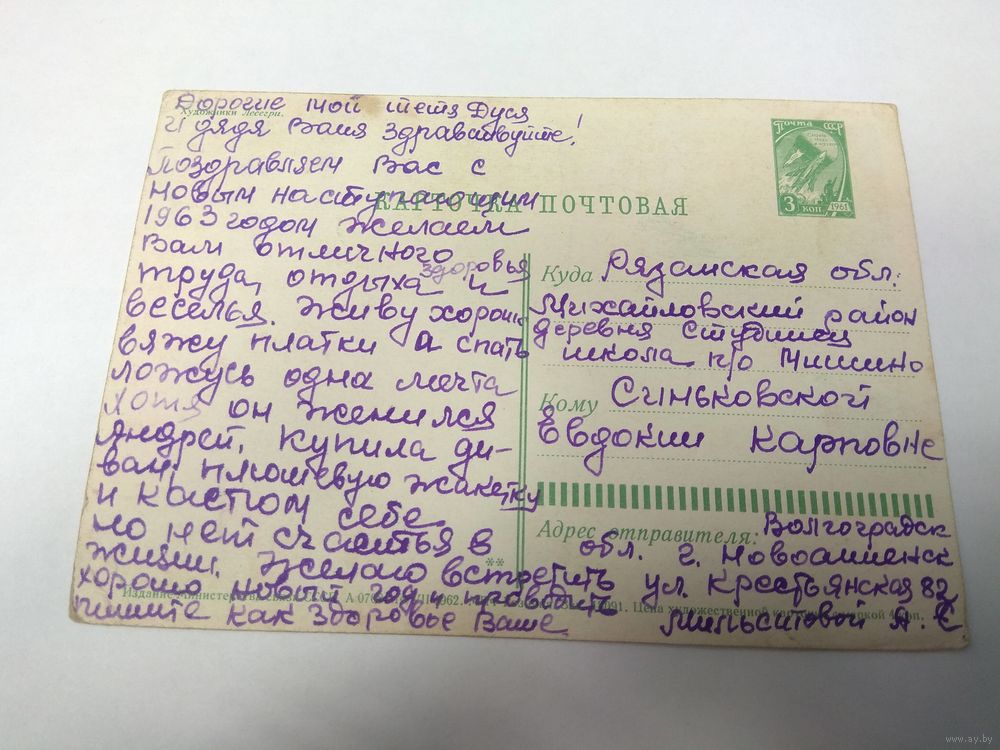 Дорогие мои тетя Дуся
Художники Лесегри.
и дядя Ваня здравствуйте!
Поздравляем Вас с
новым наступающим
1963 годом желаем
Вам отличного
здоровья
труда, отдыха и
веселья. Живу хорошо
вяжу платки а спать
ложусь одна мечта
хотя он женился
Андрей. Купила ди-
ван, плюшевую жакетку
и костюм себе
но нет счастья в
жизни. Желаю встретить
хорошо новый год и провдить
пишите как здоровье Ваше
Почта СССР
3 коп
1961
КАРТОЧКА ПОЧТОВАЯ
Куда Рязанская обл.
Михайловский район
деревня Студенец
школа п/о Мишино
Кому Синьковской
Евдокии Карповне
Адрес отправителя: Волгоградск
обл. г. Новоаннинск
ул. Крестьянская 82
А. Е
**
Издание Министерства связи СССР. А 1962. Цена художественной карточки с маркой 4 коп.
www.ay.by